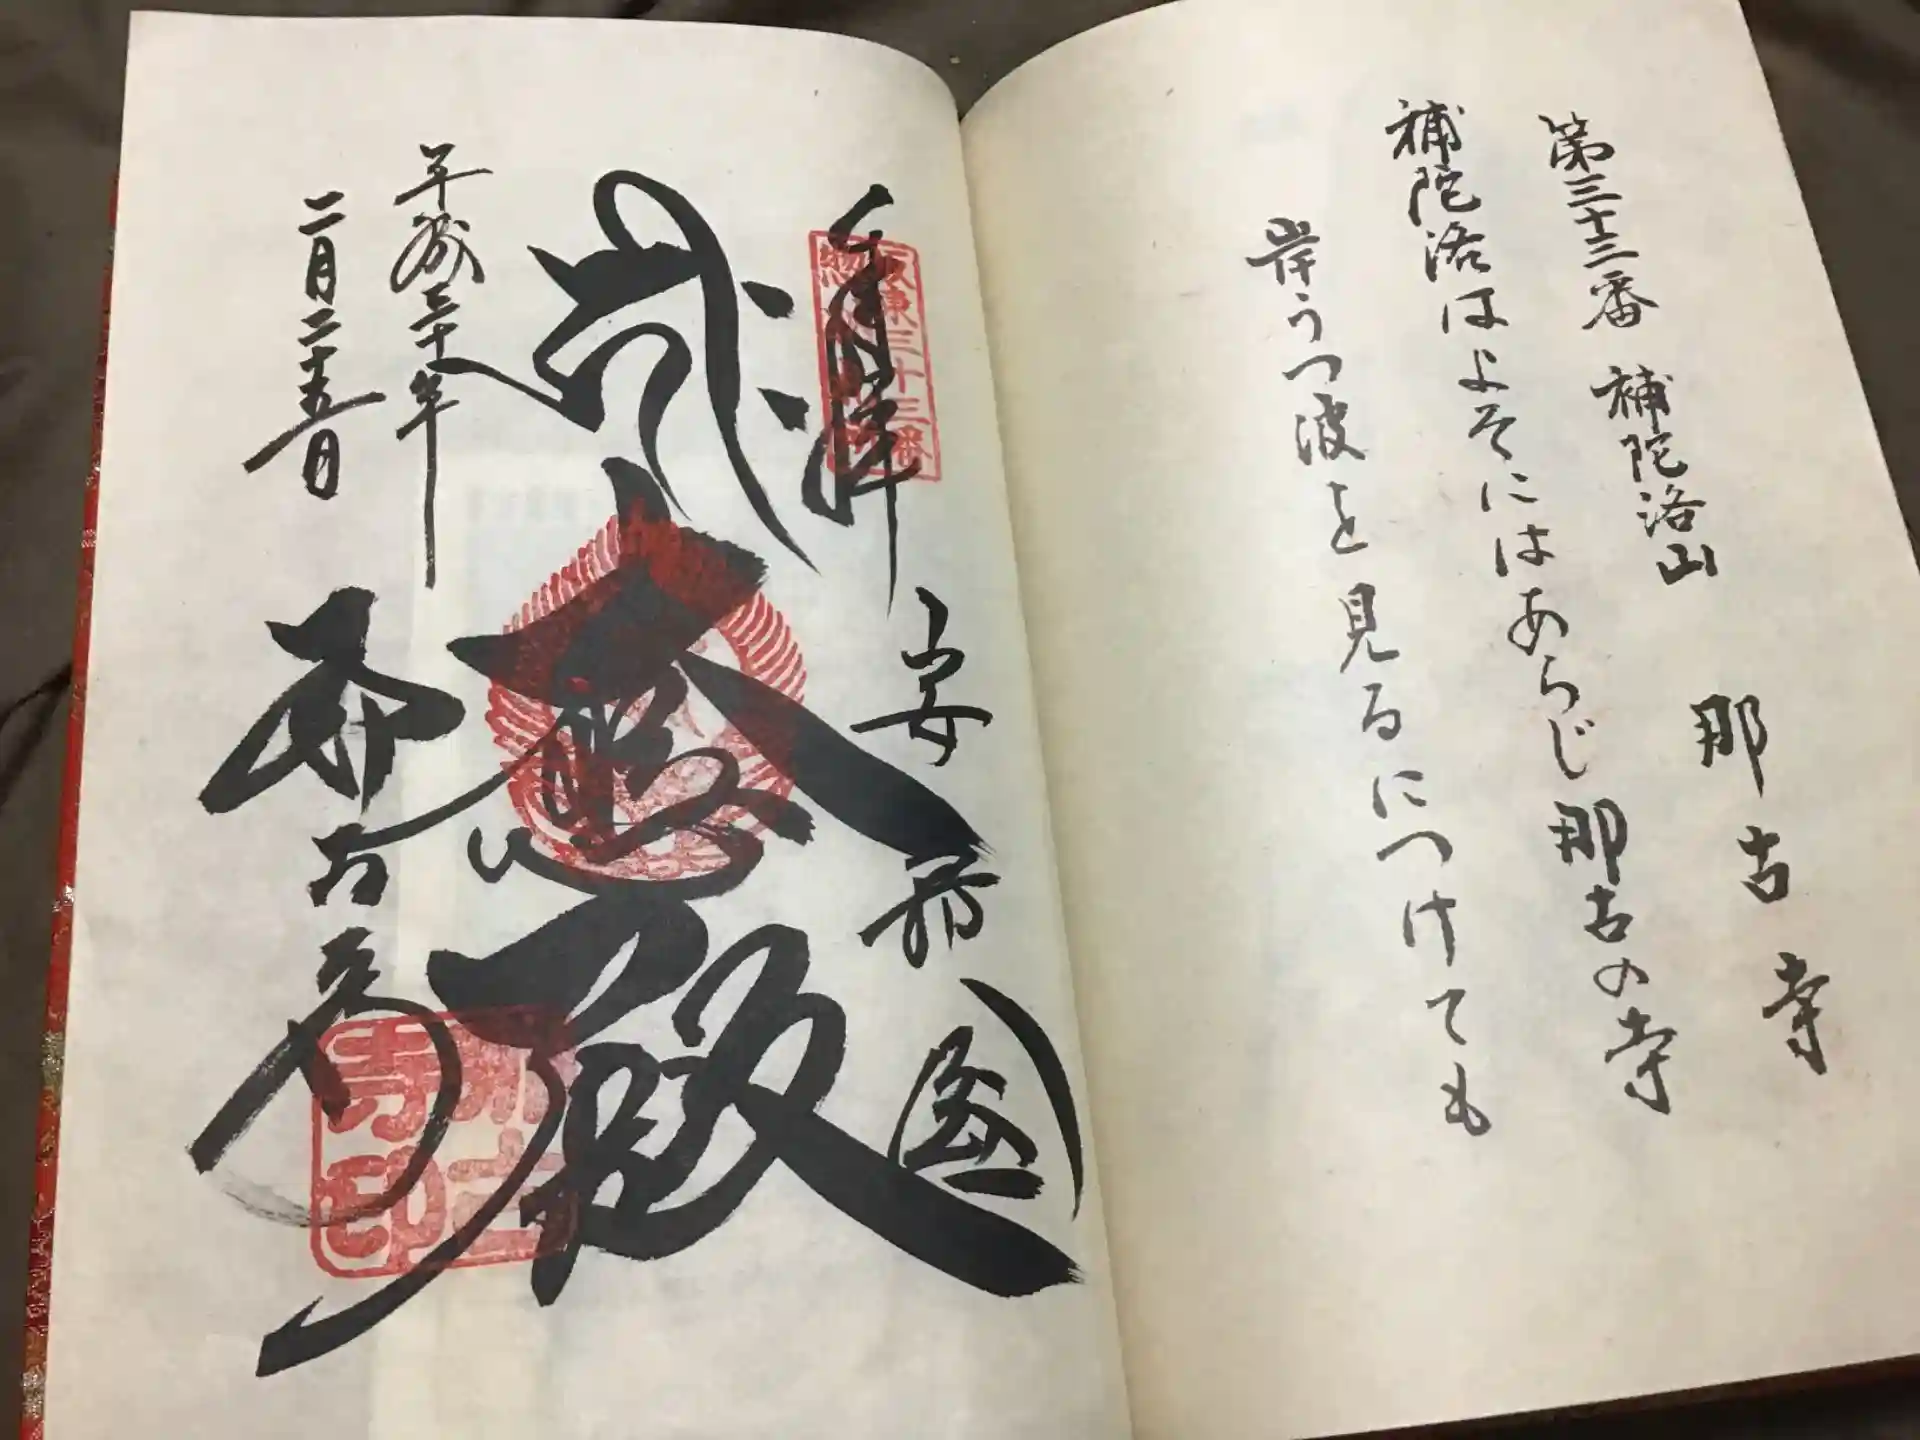 第三十三番 補陀洛山 那古寺
補陀洛はよそにはあらじ那古の寺
岸うつ波を見るにつけても
奉拝 安房國
坂東三十三番
大悲殿
平成三十年
二月二十五日
那古寺
那古
寺印